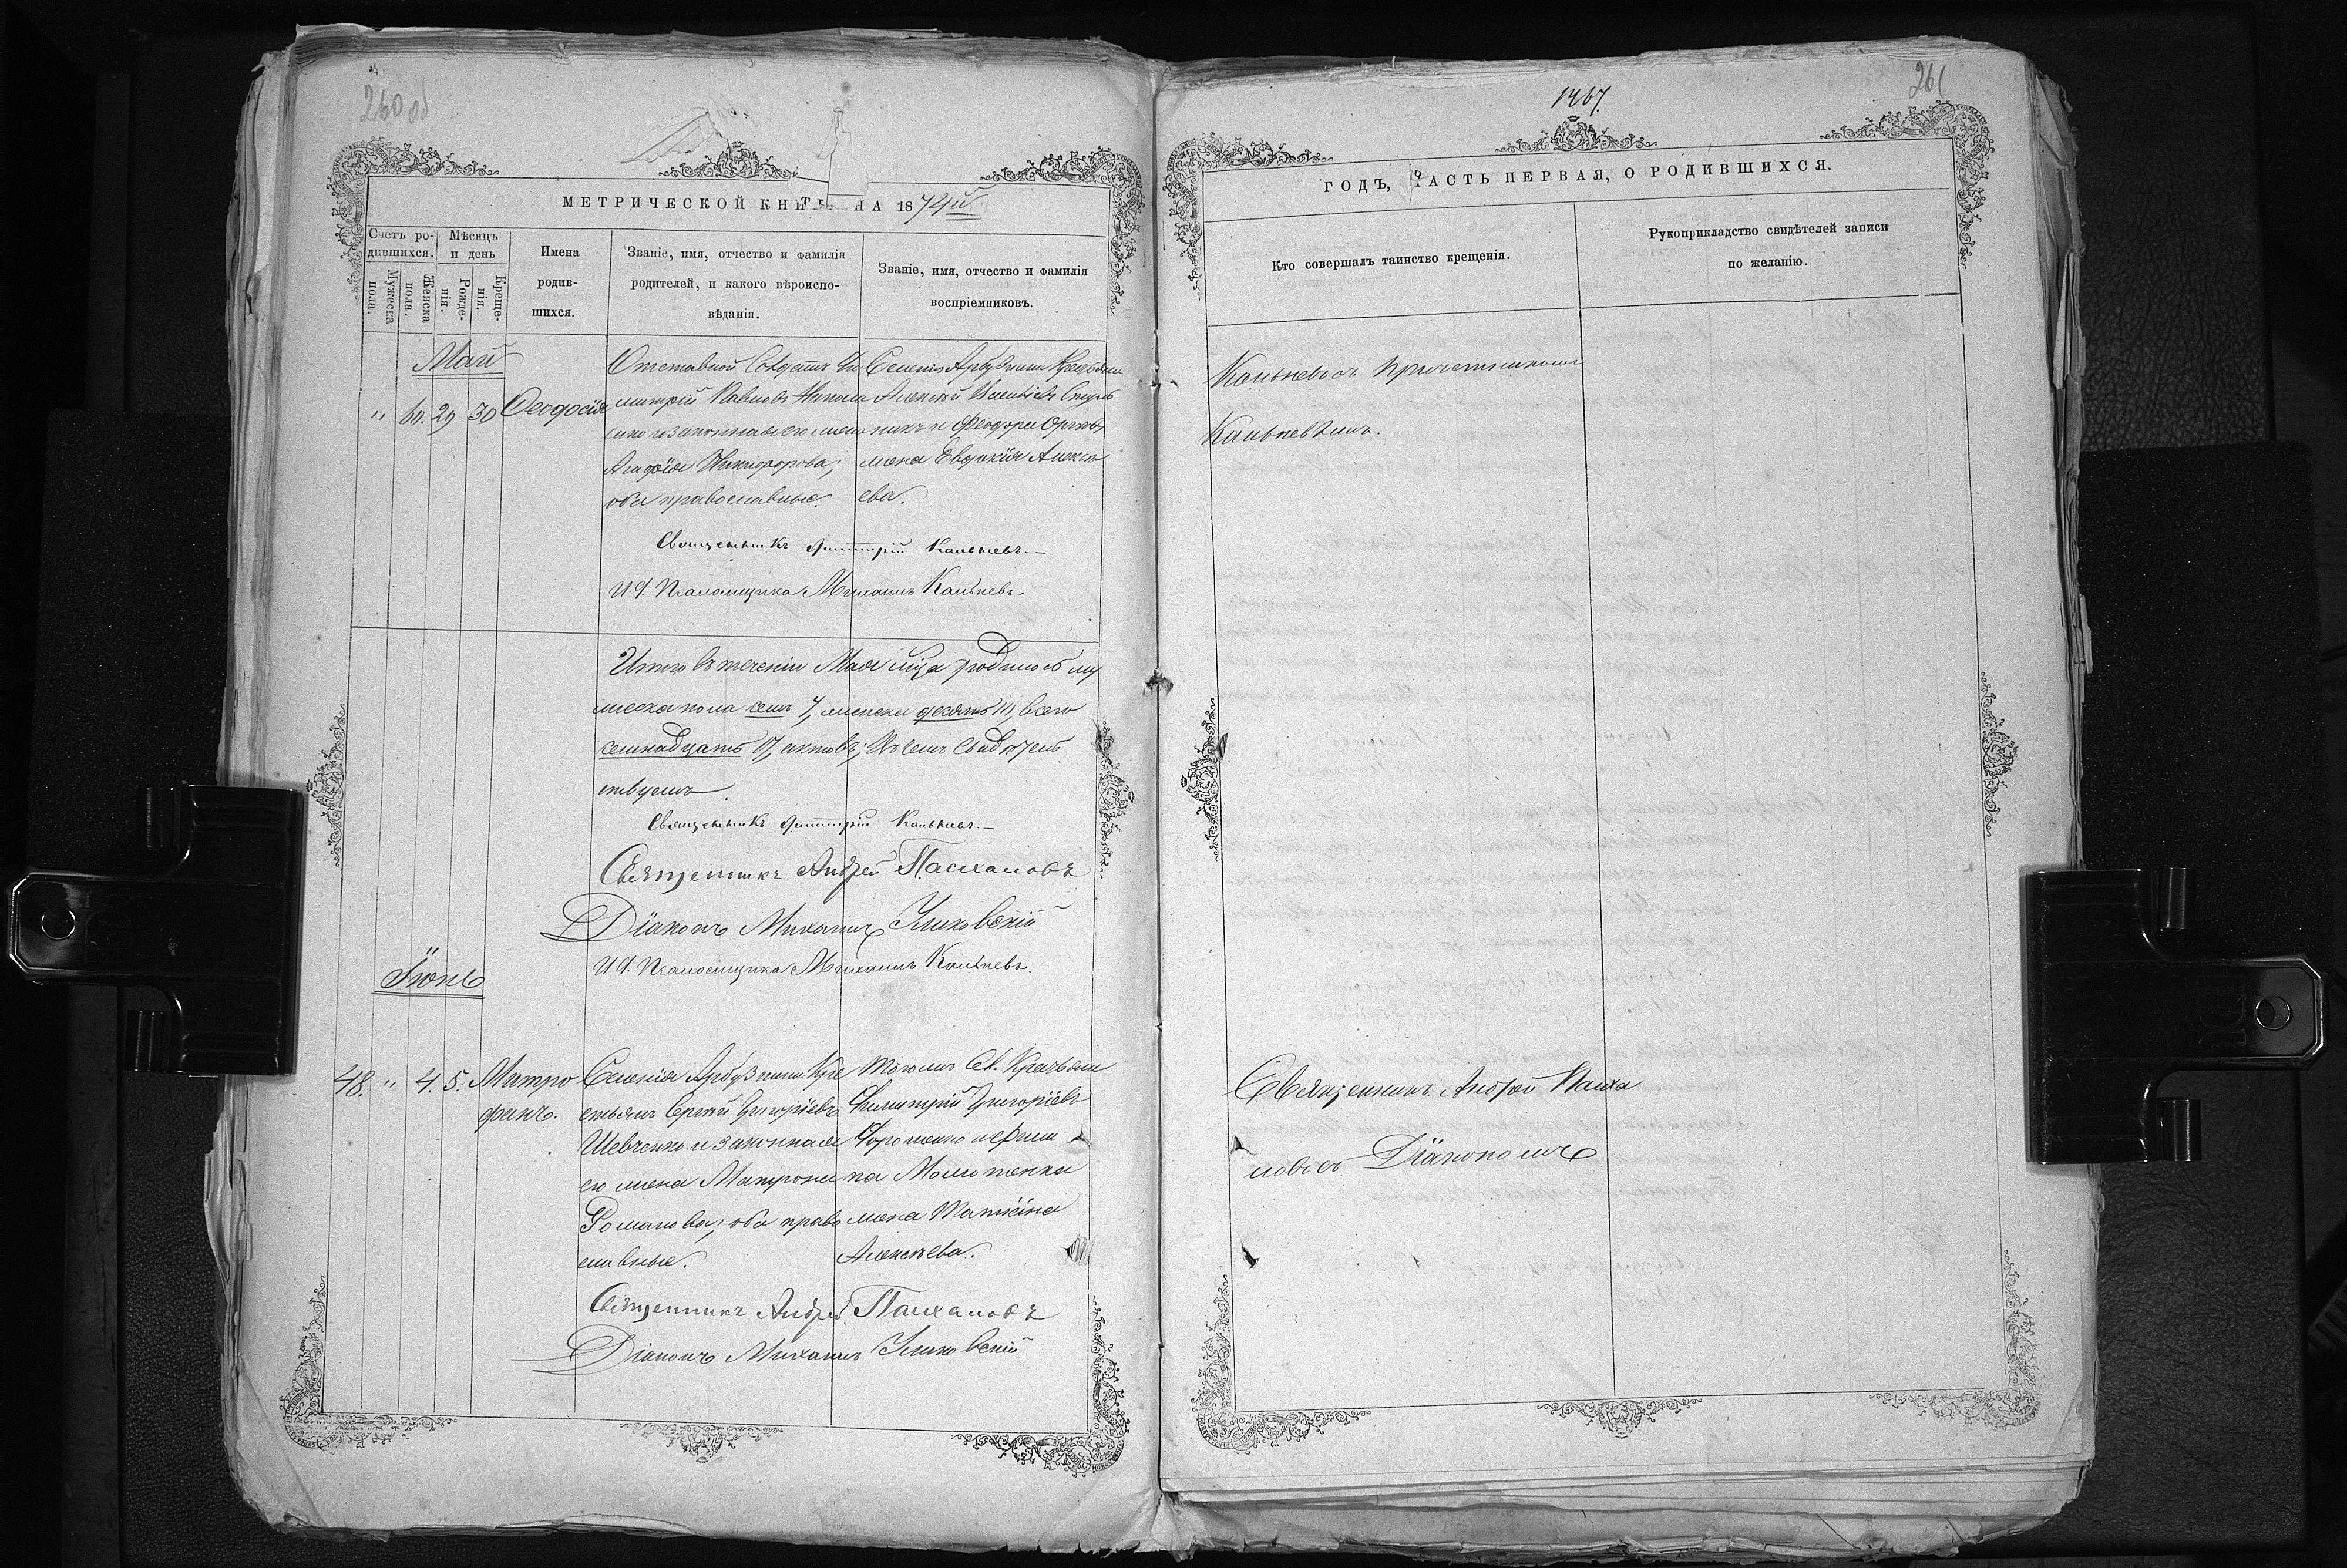 260 об
МЕТРИЧЕСКОЙ КНИГИ НА 1874й
Счетъ родившихся.
Мужеска пола.
Женска пола.
Мѣсяцъ и день
Рожденія.
Крещенія.
Имена родившихся.
Званіе, имя, отчество и фамилія
родителей, и какого вѣроиспо-
вѣданія.
Званіе, имя, отчество и фамилія
воспріемниковъ.
Май
" 60. 29 30 Ѳеодосія
Отставной Солдатъ Ди
митрій Павловъ Никола
енко и законная его жена
Агафія Никифорова;
оба православные.
Селенія Арбузинки Крестьян
Алексѣй
и
жена Евдокія Алексѣ
ева.
Священникъ Димитрій Кальневъ.-
И. д. Псаломщика Михаилъ Кальневъ.
Итого въ теченіи Мая м-ца родилось му
жеска пола семь 7, женска десять 10, всего
семнадцать 17, актовъ; Въ чемъ свидѣтель
ствуемъ.
Священникъ Димитрій Кальневъ.-
Священникъ Андрей Пасхаловъ
Діаконъ Михаилъ
И. д. Псаломщика Михаилъ Кальневъ.
Іюнь
48. " 4. 5. Митро
фанъ.
Селенія Арбузинки Кре
стьян Сергій Григорьевъ
Шевченко и законная
его жена Матрона
Романова; оба право
славные.
того же Сел. Крестьян
Димитрій Григорьевъ
жена Татіана
Алексѣева.
Священникъ Андрей Пасхаловъ
Діаконъ Михаилъ
1467.
261
ГОДЪ, ЧАСТЬ ПЕРВАЯ, О РОДИВШИХСЯ.
Кто совершалъ таинство крещенія.
Рукоприкладство свидѣтелей записи
по желанію.
Кальневъ съ причетникомъ
Кальневымъ.
Священникъ Андрей Пасха
ловъ съ Діакономъ